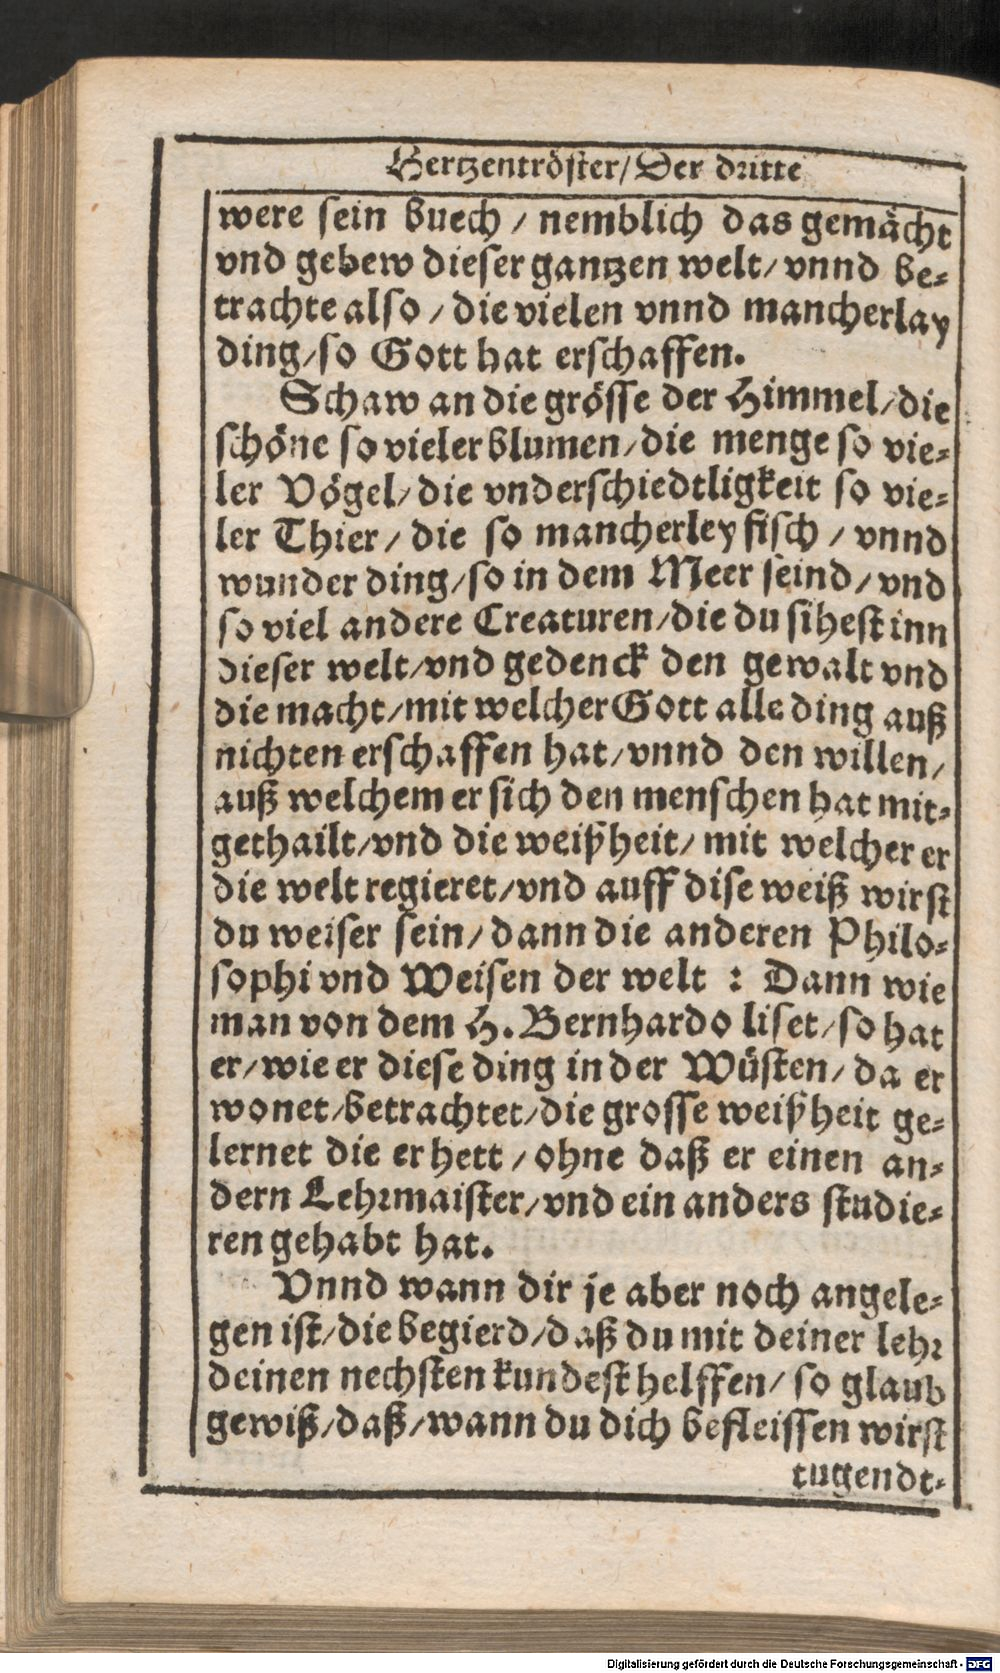 Hertzentröster/Der dritte
were sein buech / nemblich das gemächt
vnd gebew dieser gantzen welt/ vnnd be-
trachte also / die vielen vnnd mancherlay
ding/so Gott hat erschaffen.
Schaw an die grösse der Himmel/die
schöne so vieler blumen/die menge so vie-
ler Vögel/die vnderschiedtligkeit so vie-
ler Thier/ die so mancherley fisch / vnnd
wunder ding/so in dem Meer seind/vnd
so viel andere Creaturen/die du sihest inn
dieser welt/vnd gedenck den gewalt vnd
die macht/mit welcher Gott alle ding auß
nichten erschaffen hat/vnnd den willen/
auß welchem er sich den menschen hat mit-
gethailt/vnd die weißheit/ mit welcher er
die welt regieret/vnd auff dise weiß wirst
du weiser sein/dann die anderen Philo-
sophi vnd Weisen der welt : Dann wie
man von dem H. Bernhardo liset/so hat
er/wie er diese ding in der Wüsten/ da er
wonet/betrachtet/die grosse weißheit ge-
lernet die er hett / ohne daß er einen an-
dern Lehrmaister/vnd ein anders studie-
ren gehabt hat.
Vnnd wann dir je aber noch angele-
gen ist/die begierd/daß du mit deiner lehr
deinen nechsten kundest helffen/ so glaub
gewiß/daß/wann du dich befleissen wirst
tugendt-
Digitalisierung gefördert durch die Deutsche Forschungsgemeinschaft - DFG